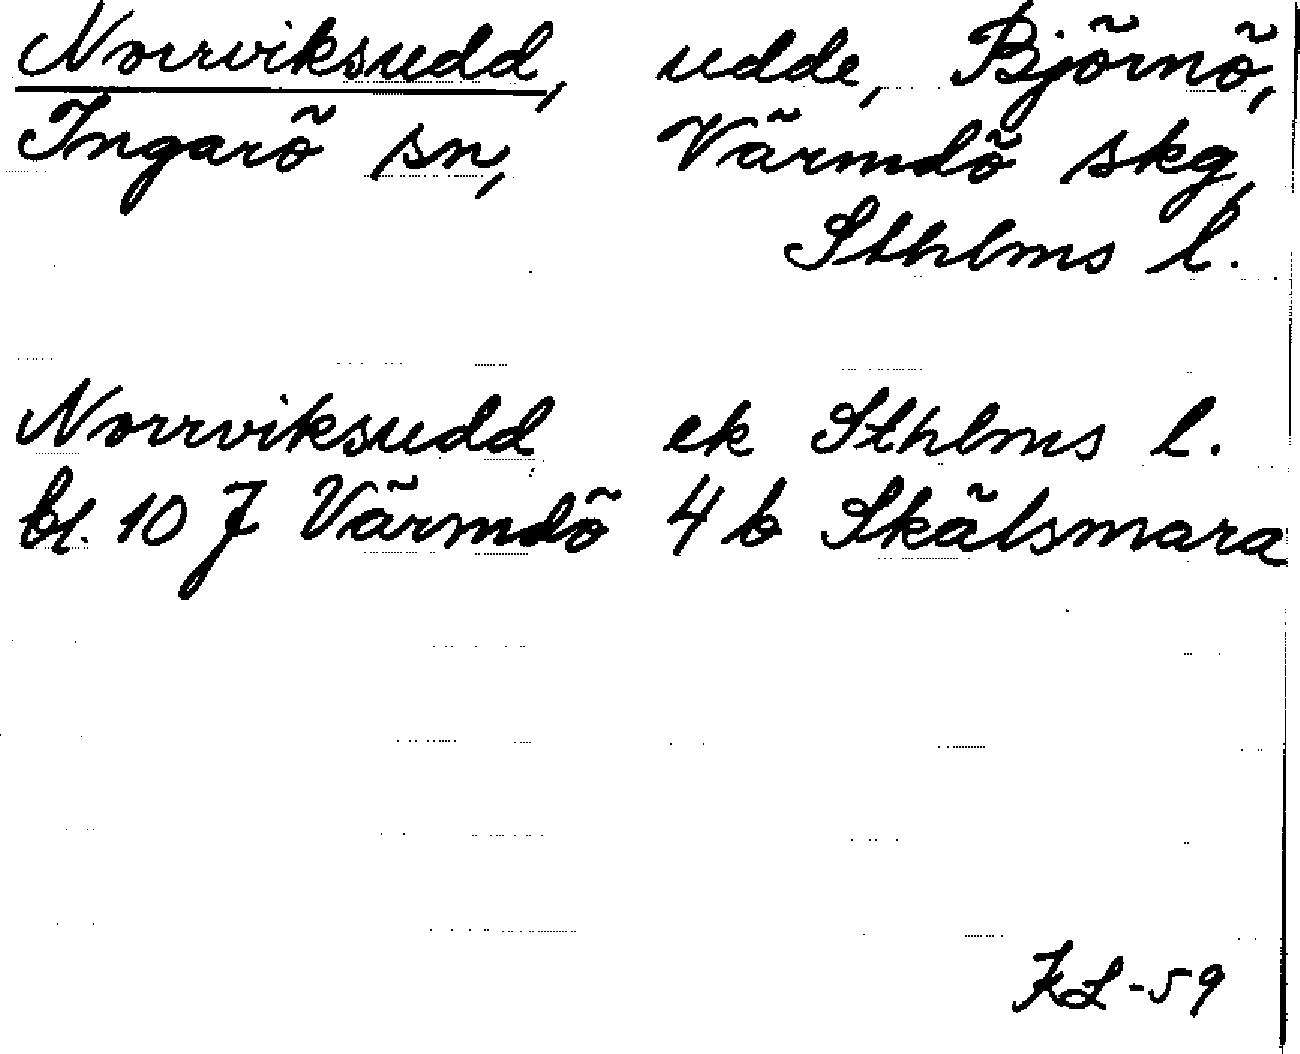 Norrviksudd, udde, Björnö,
Ingarö sn, Värmdö skg,
Sthlms l.
Norrviksudd ek Sthlms l.
bl. 10 J Värmdö 4 b Skälsmara
KL-59